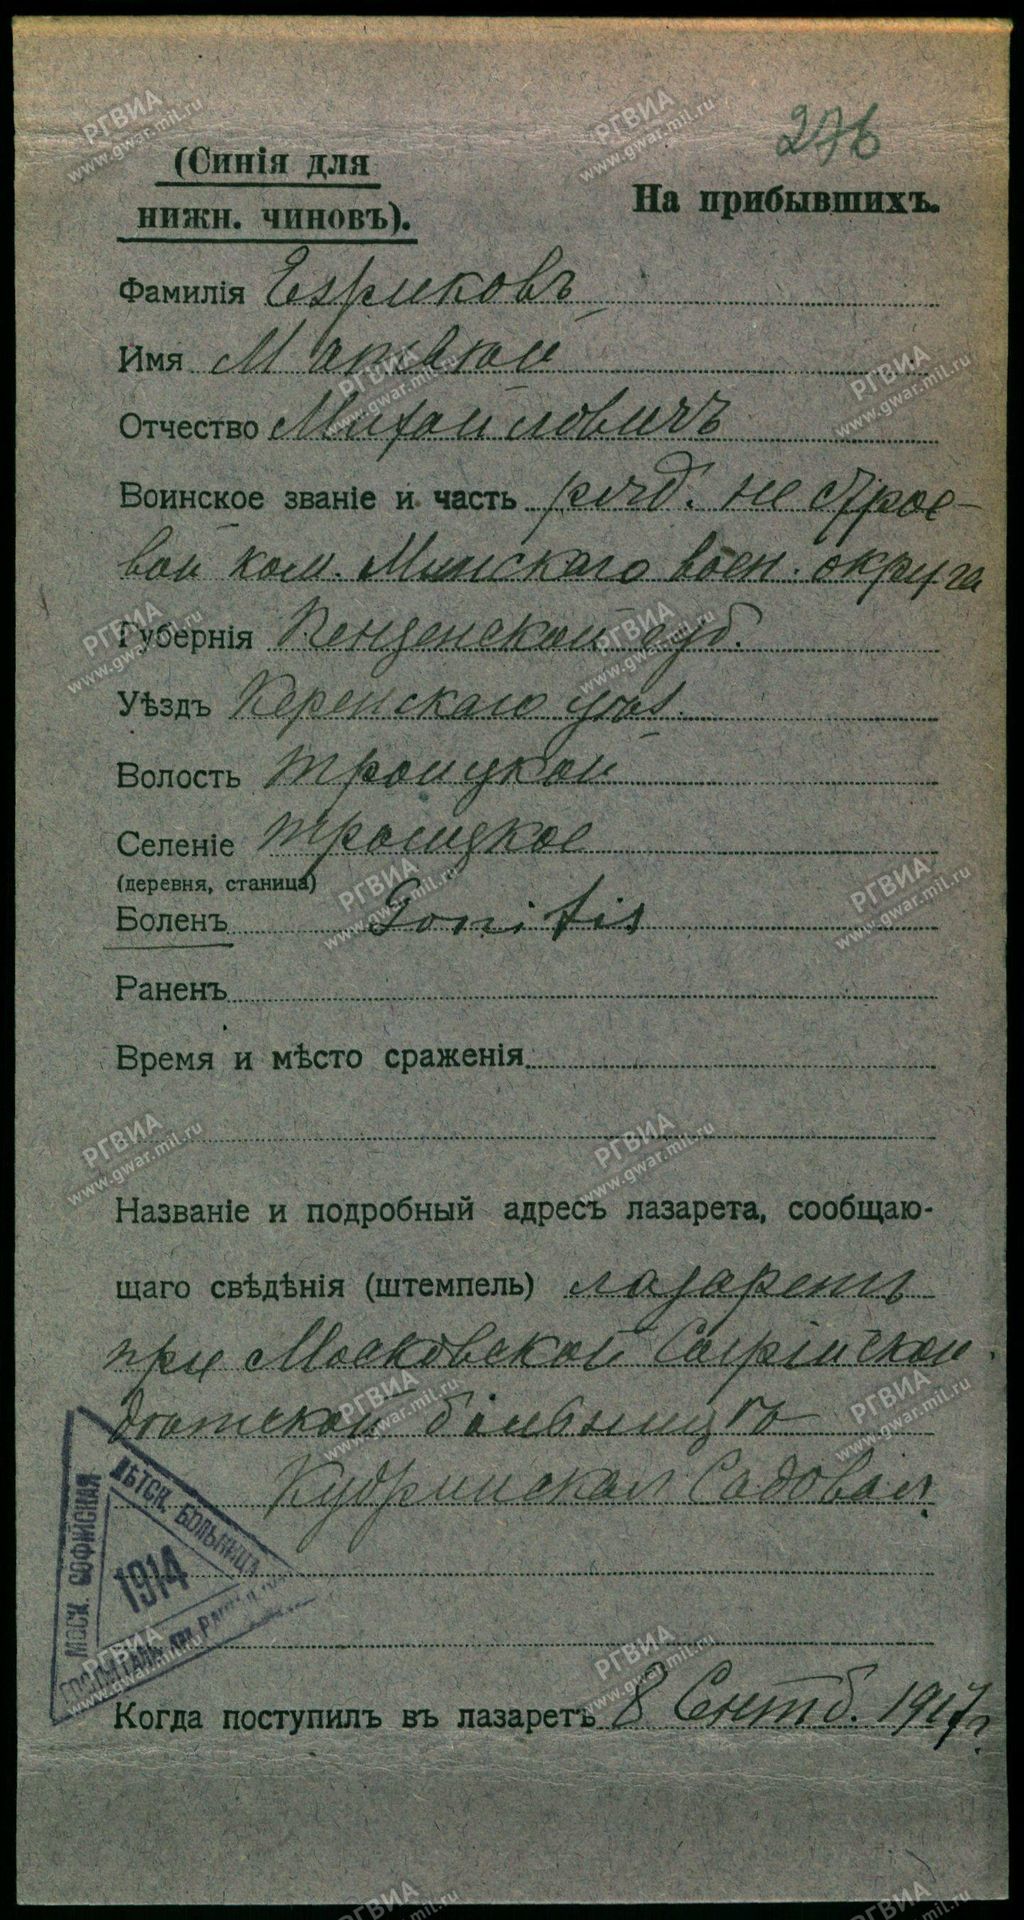 276
(Синія для
нижн. чиновъ).
На прибывшихъ.
Фамилія Езриковъ
Имя
Отчество Михайловичъ
Воинское званіе и часть ряд. не строе-
вой ком. Минскаго воен. округа
Губернія Пензенской губ.
Уѣздъ Керенскаго
Волость Троицкой
Селеніе Троицкое
(деревня, станица)
Боленъ
Раненъ
Время и мѣсто сраженія
Названіе и подробный адресъ лазарета, сообщаю-
щаго свѣдѣнія (штемпель) лазаретъ
при Московской Софійской
дѣтской больницѣ
Кудринская Садовая.
МОСК. СОФІЙСКАЯ
ДѢТСК. БОЛЬНИЦА
1914
Когда поступилъ въ лазаретъ 8 Сентб. 1917 г.
РГВИА
www.gwar.mil.ru